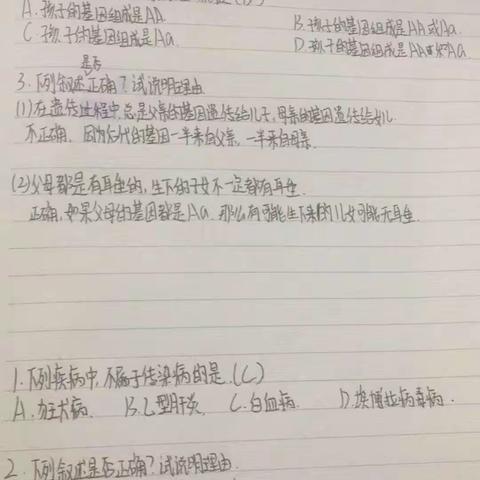 A.孩子的基因组成是AA. B.孩子的基因组成是AA或Aa.
C.孩子的基因组成是Aa. D.孩子的基因组成是AA或和Aa
是否
3.下列叙述正确？试说明理由.
(1)在遗传过程中,总是父亲的基因遗传给儿子,母亲的基因遗传给女儿.
不正确. 因为后代的基因一半来自父亲,一半来自母亲.
(2)父母都是有耳垂的,生下的子女不一定都有耳垂.
正确,如果父母的基因都是Aa.那么有可能生下来的儿女可能无耳垂.
1.下列疾病中,不属于传染病的是.(C)
A.狂犬病. B.乙型肝炎. C.白血病. D.埃博拉病毒病.
2.下列叙述是否正确？试说明理由.